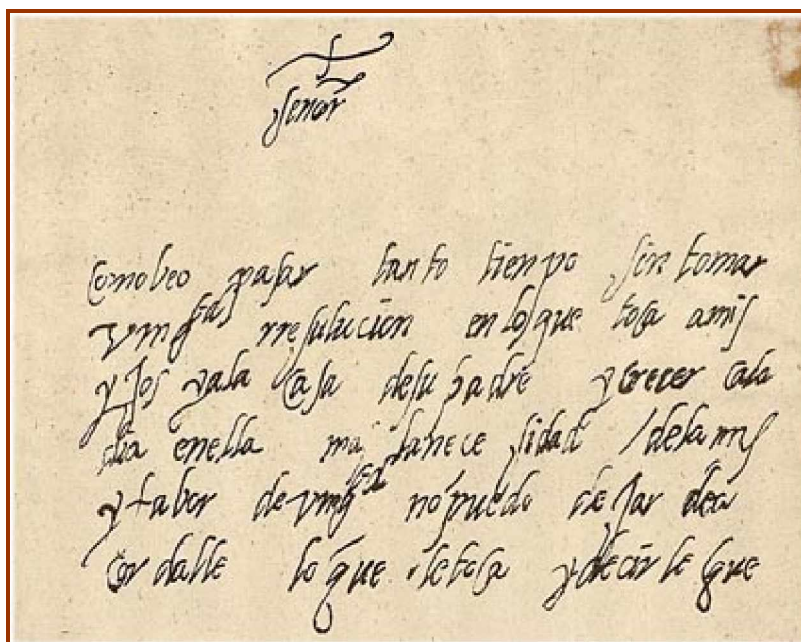 señor
como beo pasar tanto tiempo sin tomar
vmgtad rresulucion en los que toca a mis
yjos y a la casa de su padre y crecer cada
dia en ella mas la nece sidad / de la mrd
y fabor de vmgtad no puedo dejar de a
cordalle lo que le toca y decirle que